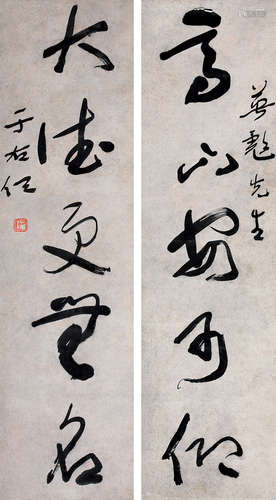 英彪先生
高山安可仰
大德更無名
于右任